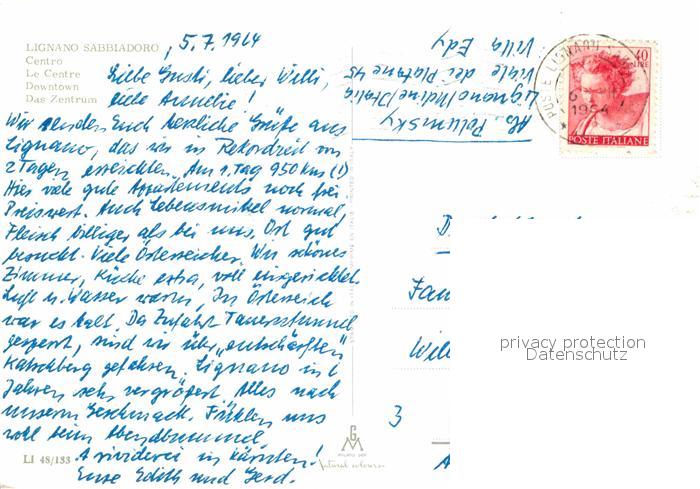 LIGNANO SABBIADORO
Centro
Le Centre
Downtown
Das Zentrum
, 5.7.1964
Liebe Gusti, lieber Willi,
liebe Annelie!
Wir senden Euch herzliche Grüße aus
Lignano, das wir in Rekordzeit von
2 Tagen erreichten. Am 1. Tag 950 km (!)
Hier viele gute Appartements noch frei
Preiswert. Auch Lebensmittel normal,
Fleisch billiger als bei uns. Ort gut
besucht. Viele Österreicher. Wir schönes
Zimmer, Küche extra, voll eingerichtet.
Luft u. Wasser warm, In Österreich
war es kalt. Da Zufahrt Tauerntunnel
gesperrt, sind wir über "entschärften"
Katschberg gefahren. Lignano in 6
Jahren sehr vergrößert. Alles nach
unserem Geschmack. Fühlen uns
wohl beim
Arrivederci in Kärnten!
Eure Edith und Gerd.
LI 48/133
Abs.
Lignano/Udine/Italia
Viale dei Platani 45
Villa Edy
POSTE LIGNANO
1964
40
LIRE
POSTE ITALIANE
D
Fam
Will
3
A
GM
MILANO
natural colour
privacy protection
Datenschutz